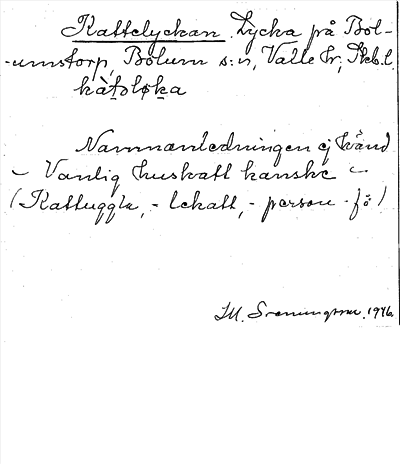 Kattelyckan. Lycka på Bol-
-umstorp, Bolum s:n, Valle hr, Skb.l.
kàt̠oløk̠a
Namnanledningen ej känd
– Vanlig huskatt kanske –
(Kattuggla, - lekatt, - person - fö)
M. Svenungsson. 1946.